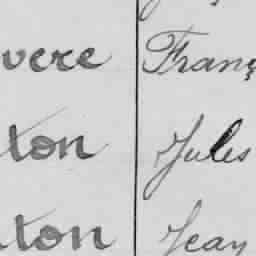 vere Franç
ton Jules
ton Jean